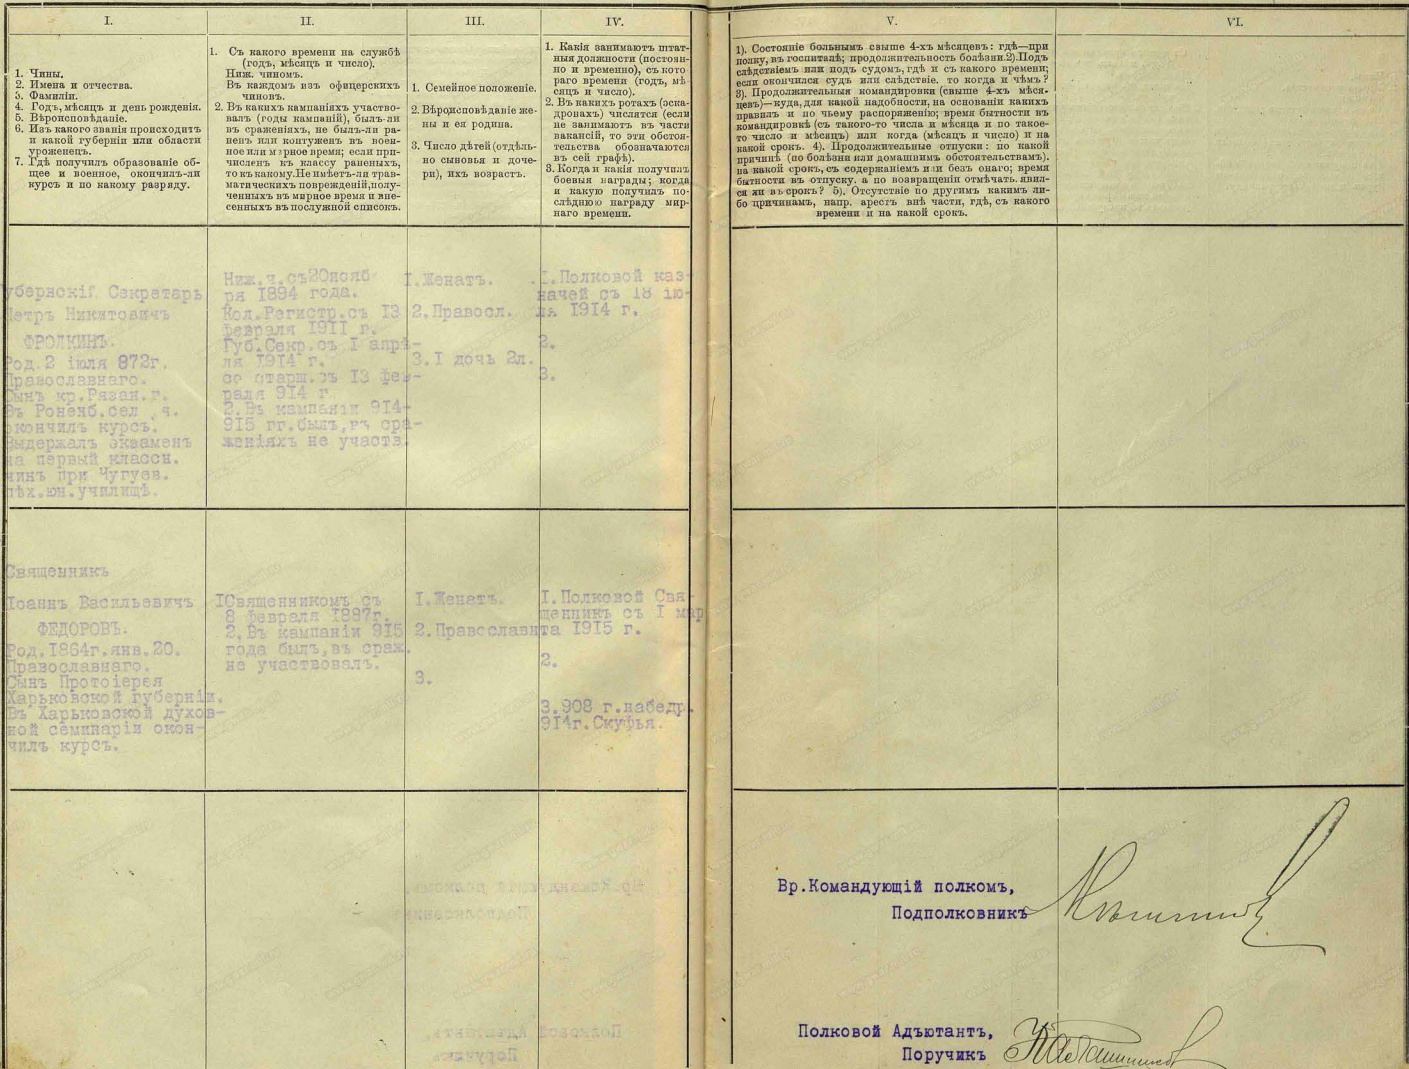 I.
1. Чины.
2. Имена и отчества.
3. Фамиліи.
4. Годъ, мѣсяцъ и день рожденія.
5. Вѣроисповѣданіе.
6. Изъ какого званія происходитъ
и какой губерніи или области
уроженецъ.
7. Гдѣ получилъ образованіе об-
щее и военное, окончилъ-ли
курсъ и по какому разряду.
II.
1. Съ какого времени на службѣ
(годъ, мѣсяцъ и число).
Ниж. чиномъ.
Въ каждомъ изъ офицерскихъ
чиновъ.
2. Въ какихъ кампаніяхъ участво-
валъ (годы кампаній), былъ-ли
въ сраженіяхъ, не былъ-ли ра-
ненъ или контуженъ въ воен-
ное или мирное время; если при-
численъ къ классу раненыхъ,
то къ какому. Не имѣетъ-ли трав-
матическихъ поврежденій, полу-
ченныхъ въ мирное время и вне-
сенныхъ въ послужной списокъ.
III.
1. Семейное положеніе.
2. Вѣроисповѣданіе же-
ны и ея родина.
3. Число дѣтей (отдѣль-
но сыновья и доче-
ри), ихъ возрастъ.
IV.
1. Какія занимаютъ штат-
ныя должности (постоян-
но и временно), съ кото-
раго времени (годъ, мѣ-
сяцъ и число).
2. Въ какихъ ротахъ (эска-
дронахъ) числятся (если
не занимаютъ въ части
вакансій, то эти обстоя-
тельства обозначаются
въ сей графѣ).
3. Когда и какія получилъ
боевыя награды; когда
и какую получилъ по-
слѣднюю награду мир-
наго времени.
V.
1). Состояніе больнымъ свыше 4-хъ мѣсяцевъ: гдѣ—при
полку, въ госпиталѣ; продолжительность болѣзни. 2). Подъ
слѣдствіемъ или подъ судомъ, гдѣ и съ какого времени;
если окончился судъ или слѣдствіе. то когда и чѣмъ?
3). Продолжительныя командировки (свыше 4-хъ мѣся-
цевъ)—куда, для какой надобности, на основаніи какихъ
правилъ и по чьему распоряженію; время бытности въ
командировкѣ (съ такого-то числа и мѣсяца и по такое-
то число и мѣсяцъ) или когда (мѣсяцъ и число) и на
какой срокъ. 4). Продолжительные отпуски: по какой
причинѣ (по болѣзни или домашнимъ обстоятельствамъ).
на какой срокъ, съ содержаніемъ или безъ онаго; время
бытности въ отпуску. а по возвращеніи отмѣчать. явил-
ся ли въ срокъ? 5). Отсутствіе по другимъ какимъ ли-
бо причинамъ, напр. арестъ внѣ части, гдѣ, съ какого
времени и на какой срокъ.
VI.
убернскій Секретарь
Петръ Никитовичъ
ФРОЛКИНЪ.
Род. 2 іюля 872г.
Православнаго.
Сынъ кр. Рязан. г.
Въ Роненб. сел .ч.
окончилъ курсъ.
Выдержалъ экзаменъ
на первый классн.
чинъ при Чугуев.
пѣх.юн.училищѣ.
Ниж.ч.съ 20 нояб-
ря 1894 года.
Кол.Регистр.съ 13
февраля 1911 г.
Губ.Секр.съ I апрѣ-
ля 1914 г.
со старш.съ 13 фев-
раля 914 г
2.Въ кампаніи 914-
915 гг.былъ,въ сра-
женіяхъ не участв.
I.Женатъ.
2.Правосл.
3.I дочь 2л.
I.Полковой каз-
начей съ 18 ію-
ля 1914 г.
2.
3.
Священникъ
Іоаннъ Васильевичъ
ФЕДОРОВЪ.
Род.1864г.янв.20.
Православнаго.
Сынъ Протоіерея
Харьковской губерніи.
Въ Харьковской духов-
ной семинаріи окон-
чилъ курсъ.
IСвященникомъ съ
8 февраля 1887г.
2.Въ кампаніи 915
года былъ,въ сраж.
не участвовалъ.
I.Женатъ.
2.Православн
3.
I.Полковой Свя-
щенникъ съ I мар
та 1915 г.
2.
3.908 г.набедр.
914г.Скуфья.
Вр.Командующій полкомъ,
Подполковникъ
Полковой Адъютантъ,
Поручикъ